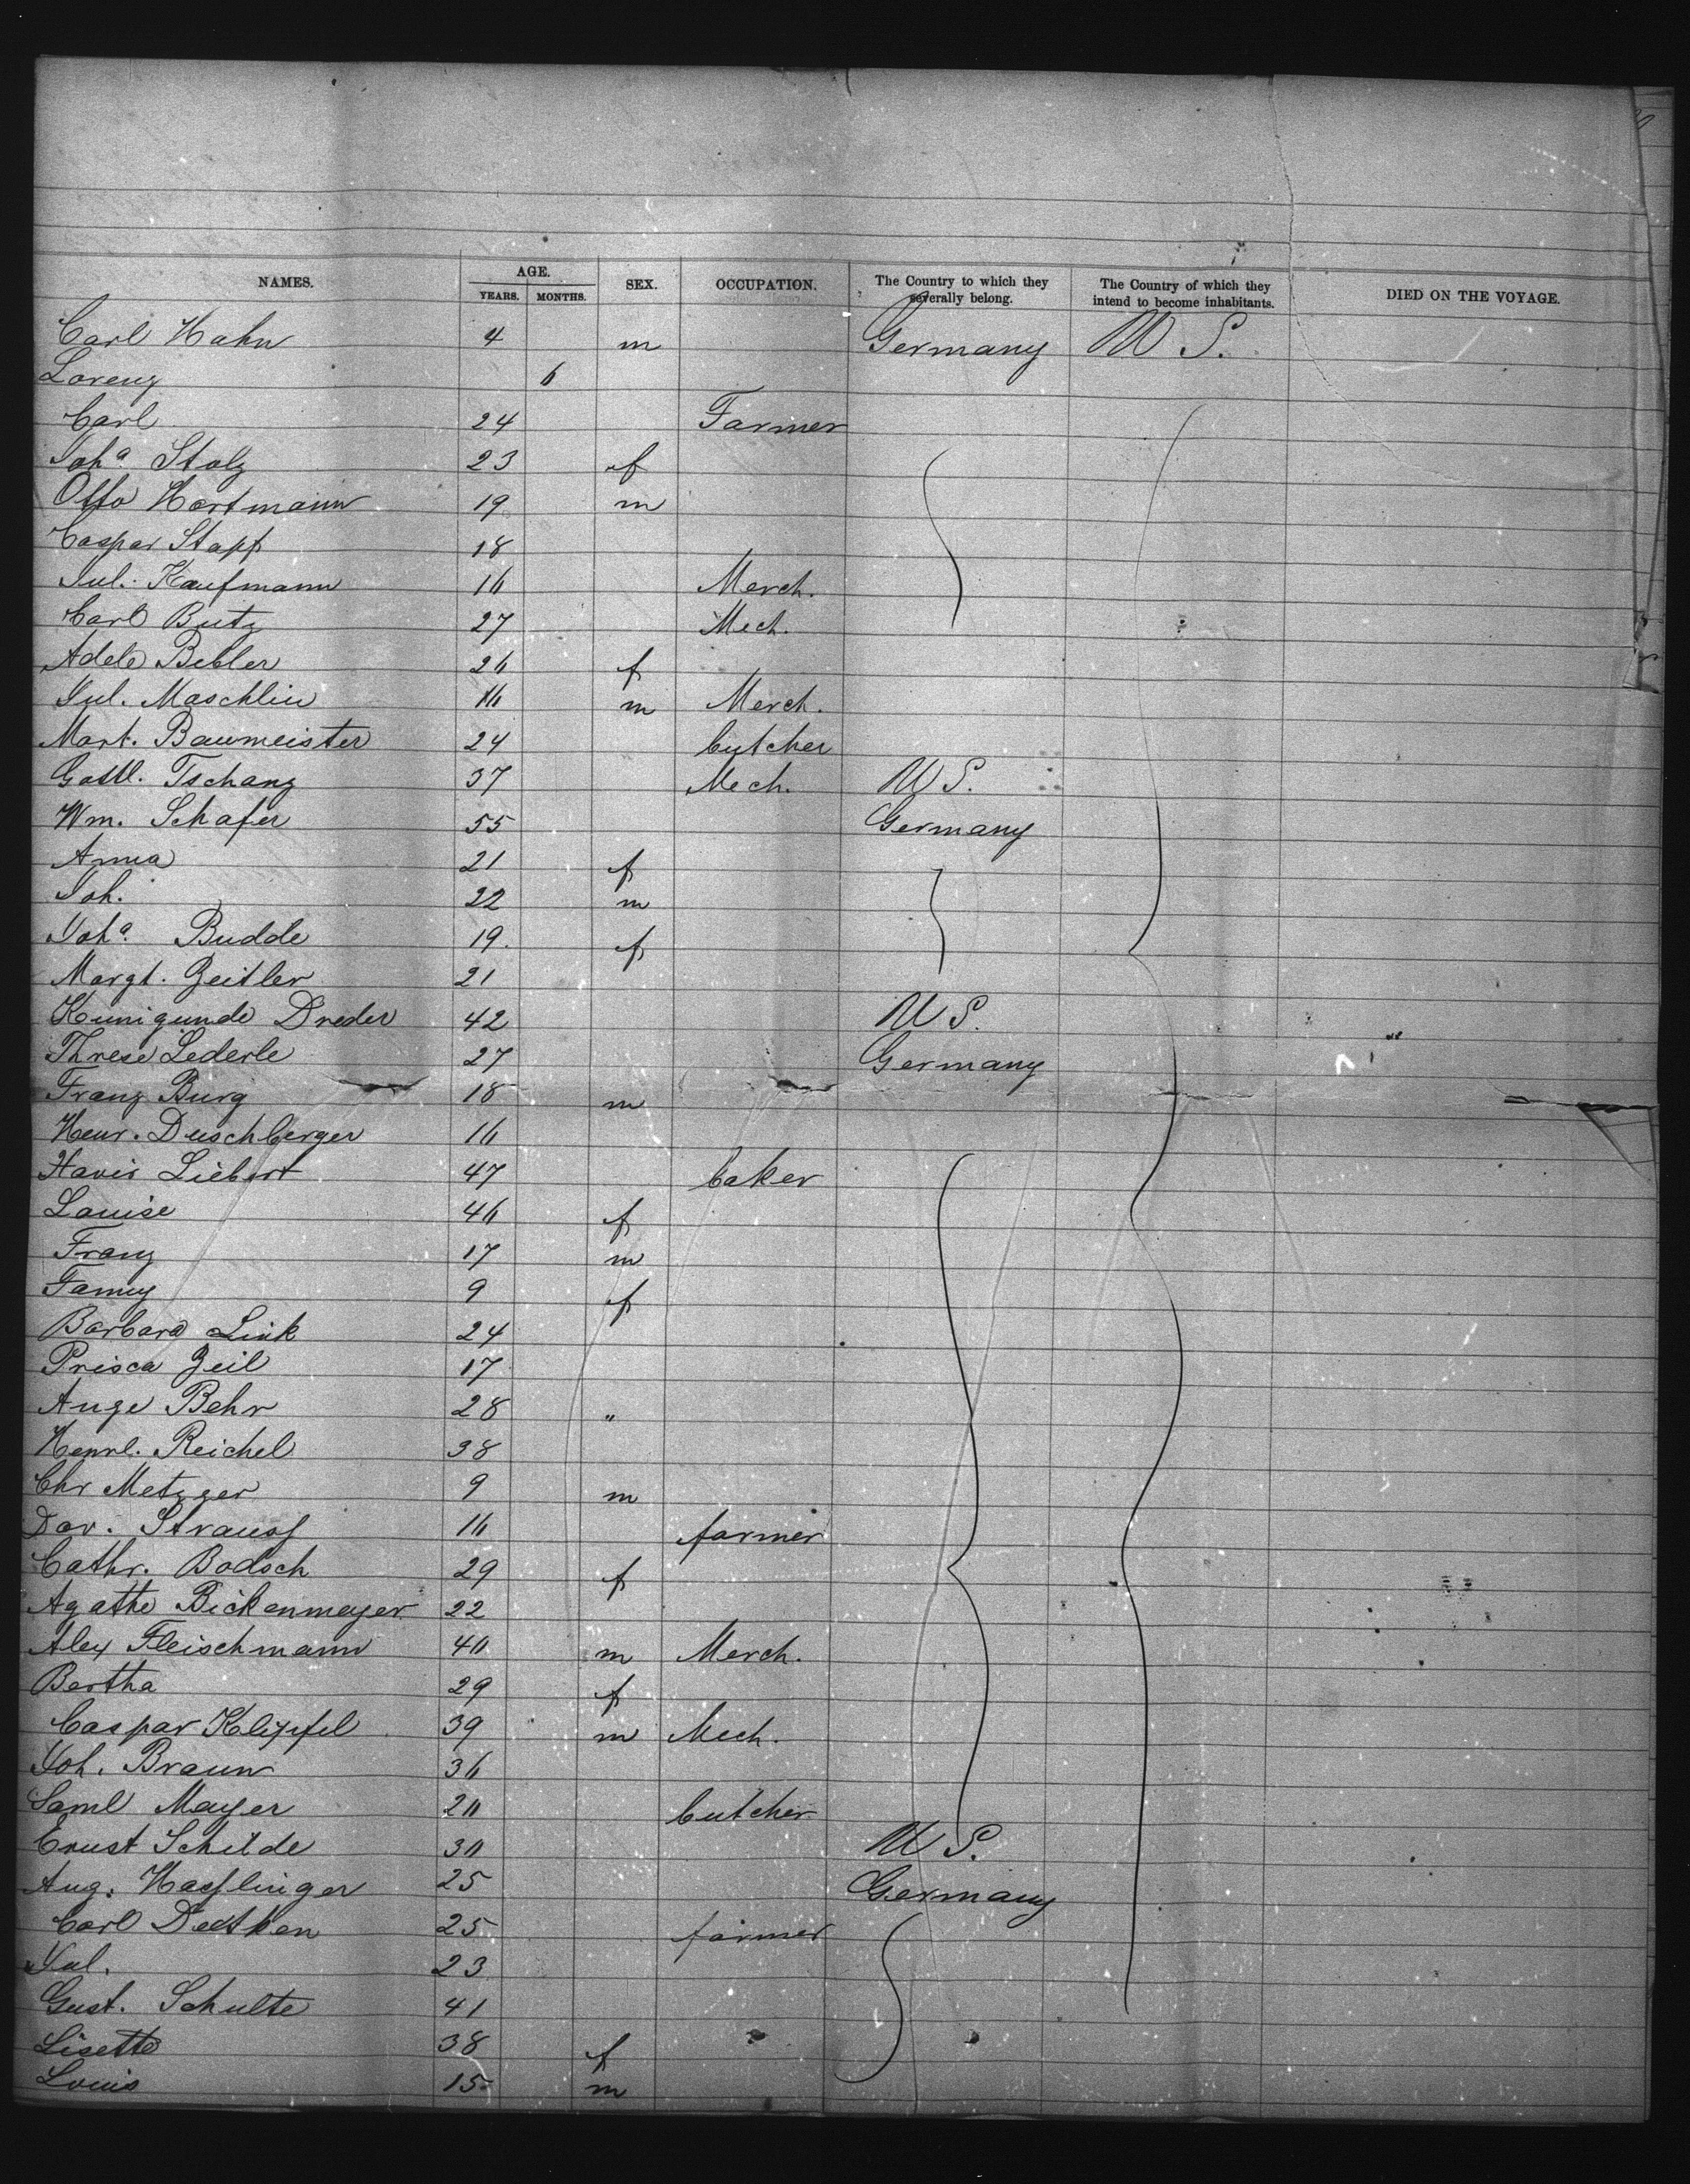 NAMES. AGE. YEARS. MONTHS. SEX. OCCUPATION. The Country to which they severally belong. The Country of which they intend to become inhabitants. DIED ON THE VOYAGE.
Carl Hahn 4 m Germany U S.
Lorenz 6
Carl 24 Farmer
Joha Stolz 23 f
Otto Hartmann 19 m
Caspar Stapf 18
Jul. Kaufmann 16 Merch.
Carl Butz 27 Mech.
Adele Bebler 26 f
Jul. Maschlin 16 m Merch.
Mart. Baumeister 24 butcher
Gottl. Tschanz 37 Mech. U S.
Wm. Schafer 55 Germany
Anna 21 f
Joh. 22 m
Joha Budde 19. f
Margt. Zeitler 21
Kunigunde Dreder 42 U S.
Threse Lederle 27 Germany
Franz Burg 18 m
Heinr. Duschberger 16
Xavir Liebert 47 baker
Louise 46 f
Franz 17 m
Fanny 9 f
Barbara Link 24
Prisca Zeil 17
Auge Behr 28 "
Henrl. Reichel 38
Chr Metzger 9 m
Dav. Strauss 16 farmer
Cathr. Bodsch 29 f
Agathe Bickenmeyer 22
Alex Fleischmann 40 m Merch.
Bertha 29 f
Caspar 39 m Mech.
Joh. Braun 36
Saml Mayer 20 butcher
Ernst Schilde 30 U S.
Aug. Hasslinger 25 Germany
Carl Deetken 25 farmer
Jul. 23
Gust. Schulte 41
Lisette 38 f
Louis 15 m